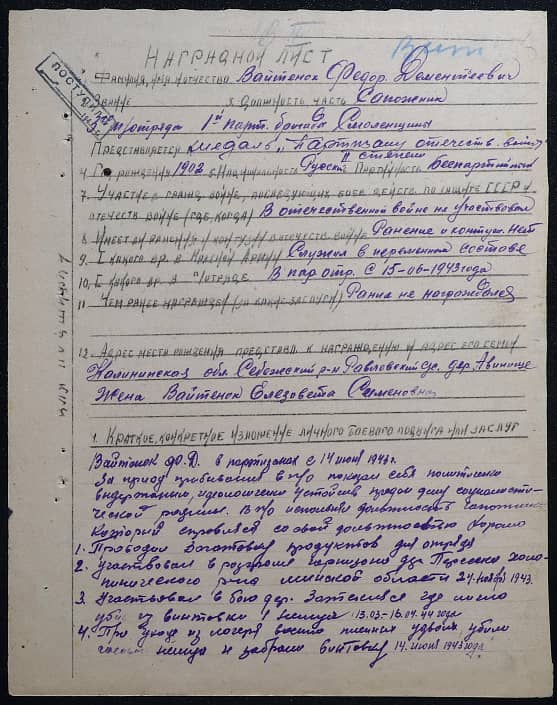 Наградной лист
Фамилия, имя отчество Вайтенок Федор Дементеевич
Поступил
Звание и должность часть Сапожник
п/отряда 1ой парт. бригады Смоленщины
Представляется к медаль „Партизану отечеств. войны
II степени
4. Год рождения 1902 5. Национальность Русский 6. Партийность Беспартийный
7. Участие в гражд. войне, последующих боев. действ. по защите СССР и
отечеств войне (где, когда) В отечественной войне не участвовал
8. Имеет ли ранения и контузии в отечеств войне Ранение и контуз. нет
9. С какого вр. в Красной Армии Служил в переменном составе
10. С какого вр. в п/отряде В пар отр. с 15-06-1943 года
11. Чем ранее награжден (за какие заслуги) Ранее не награждался
12. Адрес места рождения представл. к награждению и адрес его семьи
Калининская обл Себежский р-н Павловский с/с. дер.
Жена Вайтенок Елезовета Семеновна
1. Краткое, конкретное изложение личного боевого подвига или заслуг
Вайтенок Ф.Д. в партизанах с 14 июня 1943 г.
За период пребывания в п/о показал себя политически
выдержанным, идеологически устойчив предан делу социалисти-
ческой родины. В п/о исполнял должность сапожника
который справлялся со своей должностью хорошо
1. Проводил заготовки продуктов для отряда
2. Участвовал в разгроме гарнизона дер. Пересеки Холо-
пинического р-на минской области 24. ноября 1943.
3. Участвовал в бою дер. где лично
убил из винтовки 1 немца 13.03 - 16.04.44 года
4. При уходе из лагеря военно пленных удвоем убили
немца и забрали винтовку 14 июня 1943 года.